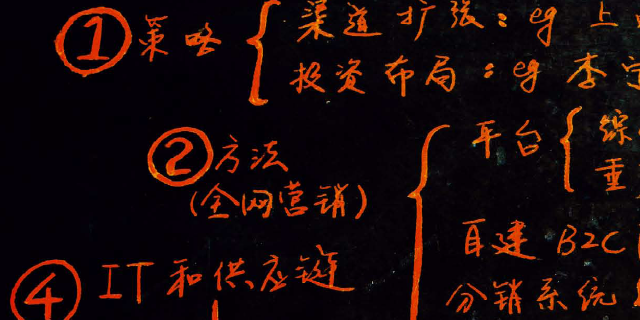 ① 策略
渠道扩张：eg 上
投资布局：eg 李宁
② 方法
(全网营销)
平台
综
垂
自建 B2C
分销系统
④ IT和供应链